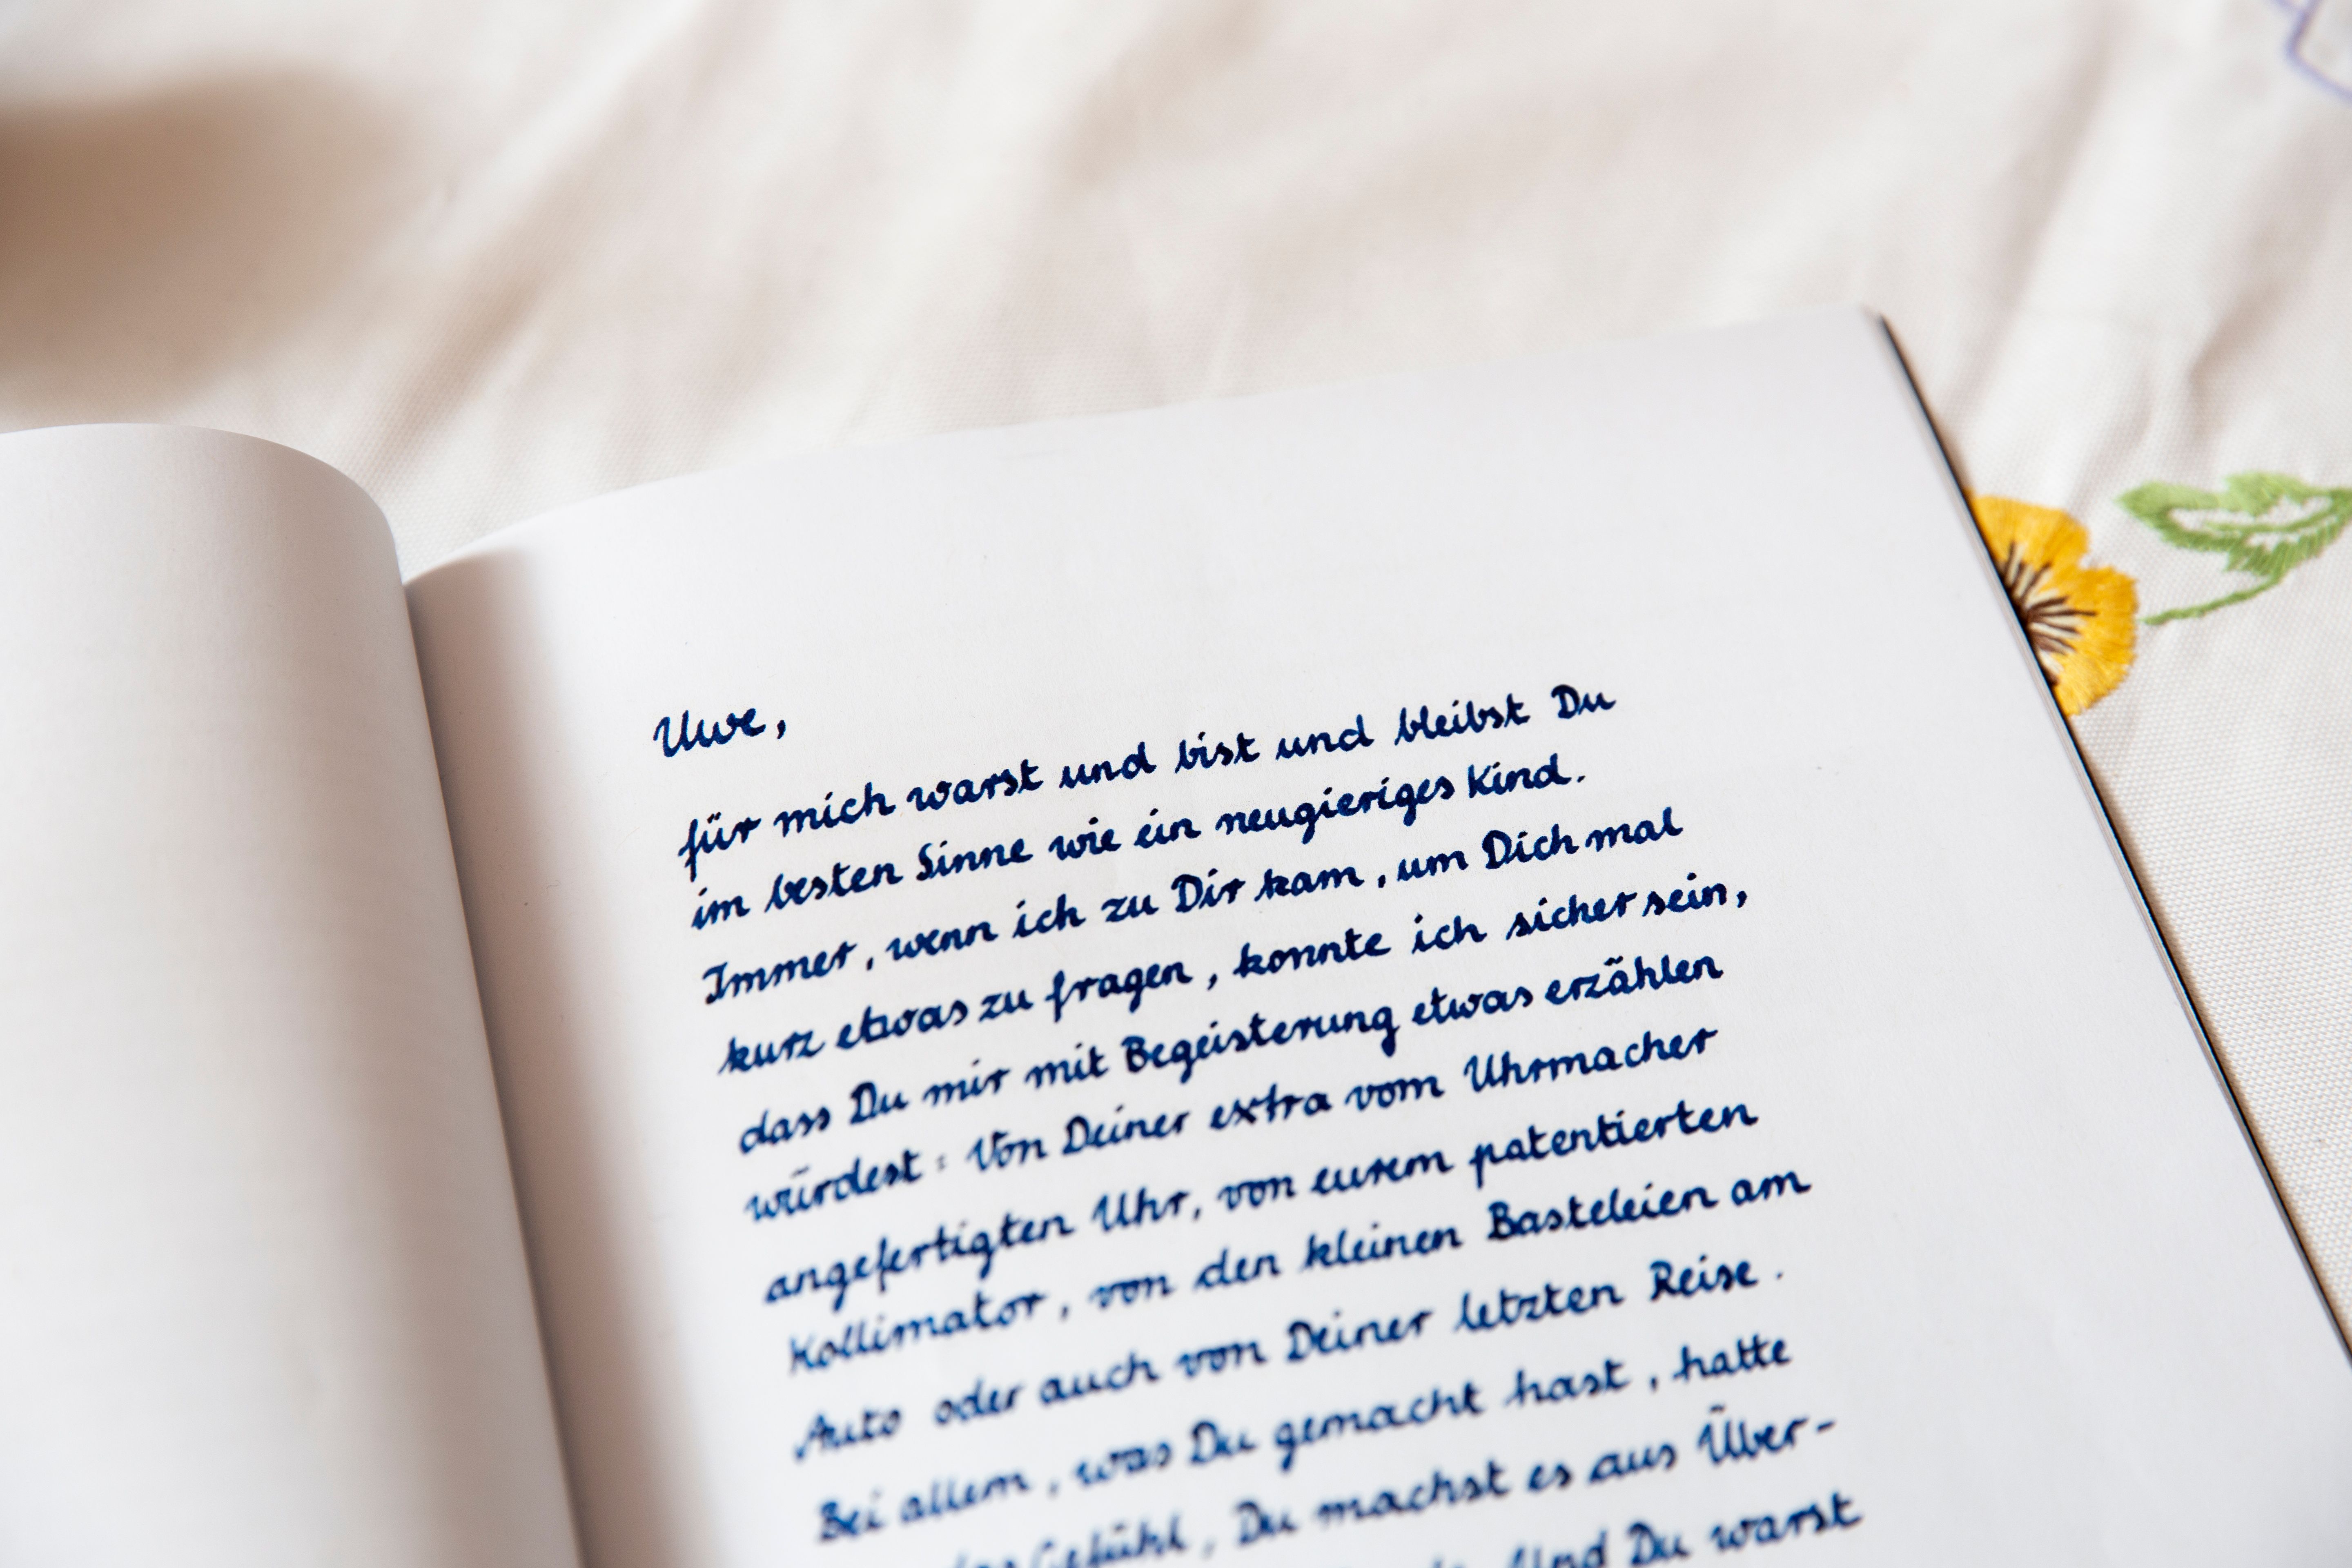 Uwe,
für mich warst und bist und bleibst Du
im besten Sinne wie ein neugieriges Kind.
Immer, wenn ich zu Dir kam, um Dich mal
kurz etwas zu fragen, konnte ich sicher sein,
dass Du mir mit Begeisterung etwas erzählen
würdest: Von Deiner extra vom Uhrmacher
angefertigten Uhr, von eurem patentierten
Kollimator, von den kleinen Basteleien am
Auto oder auch von Deiner letzten Reise.
Bei allem, was Du gemacht hast, hatte
das Gefühl, Du machst es aus Über-
Und Du warst